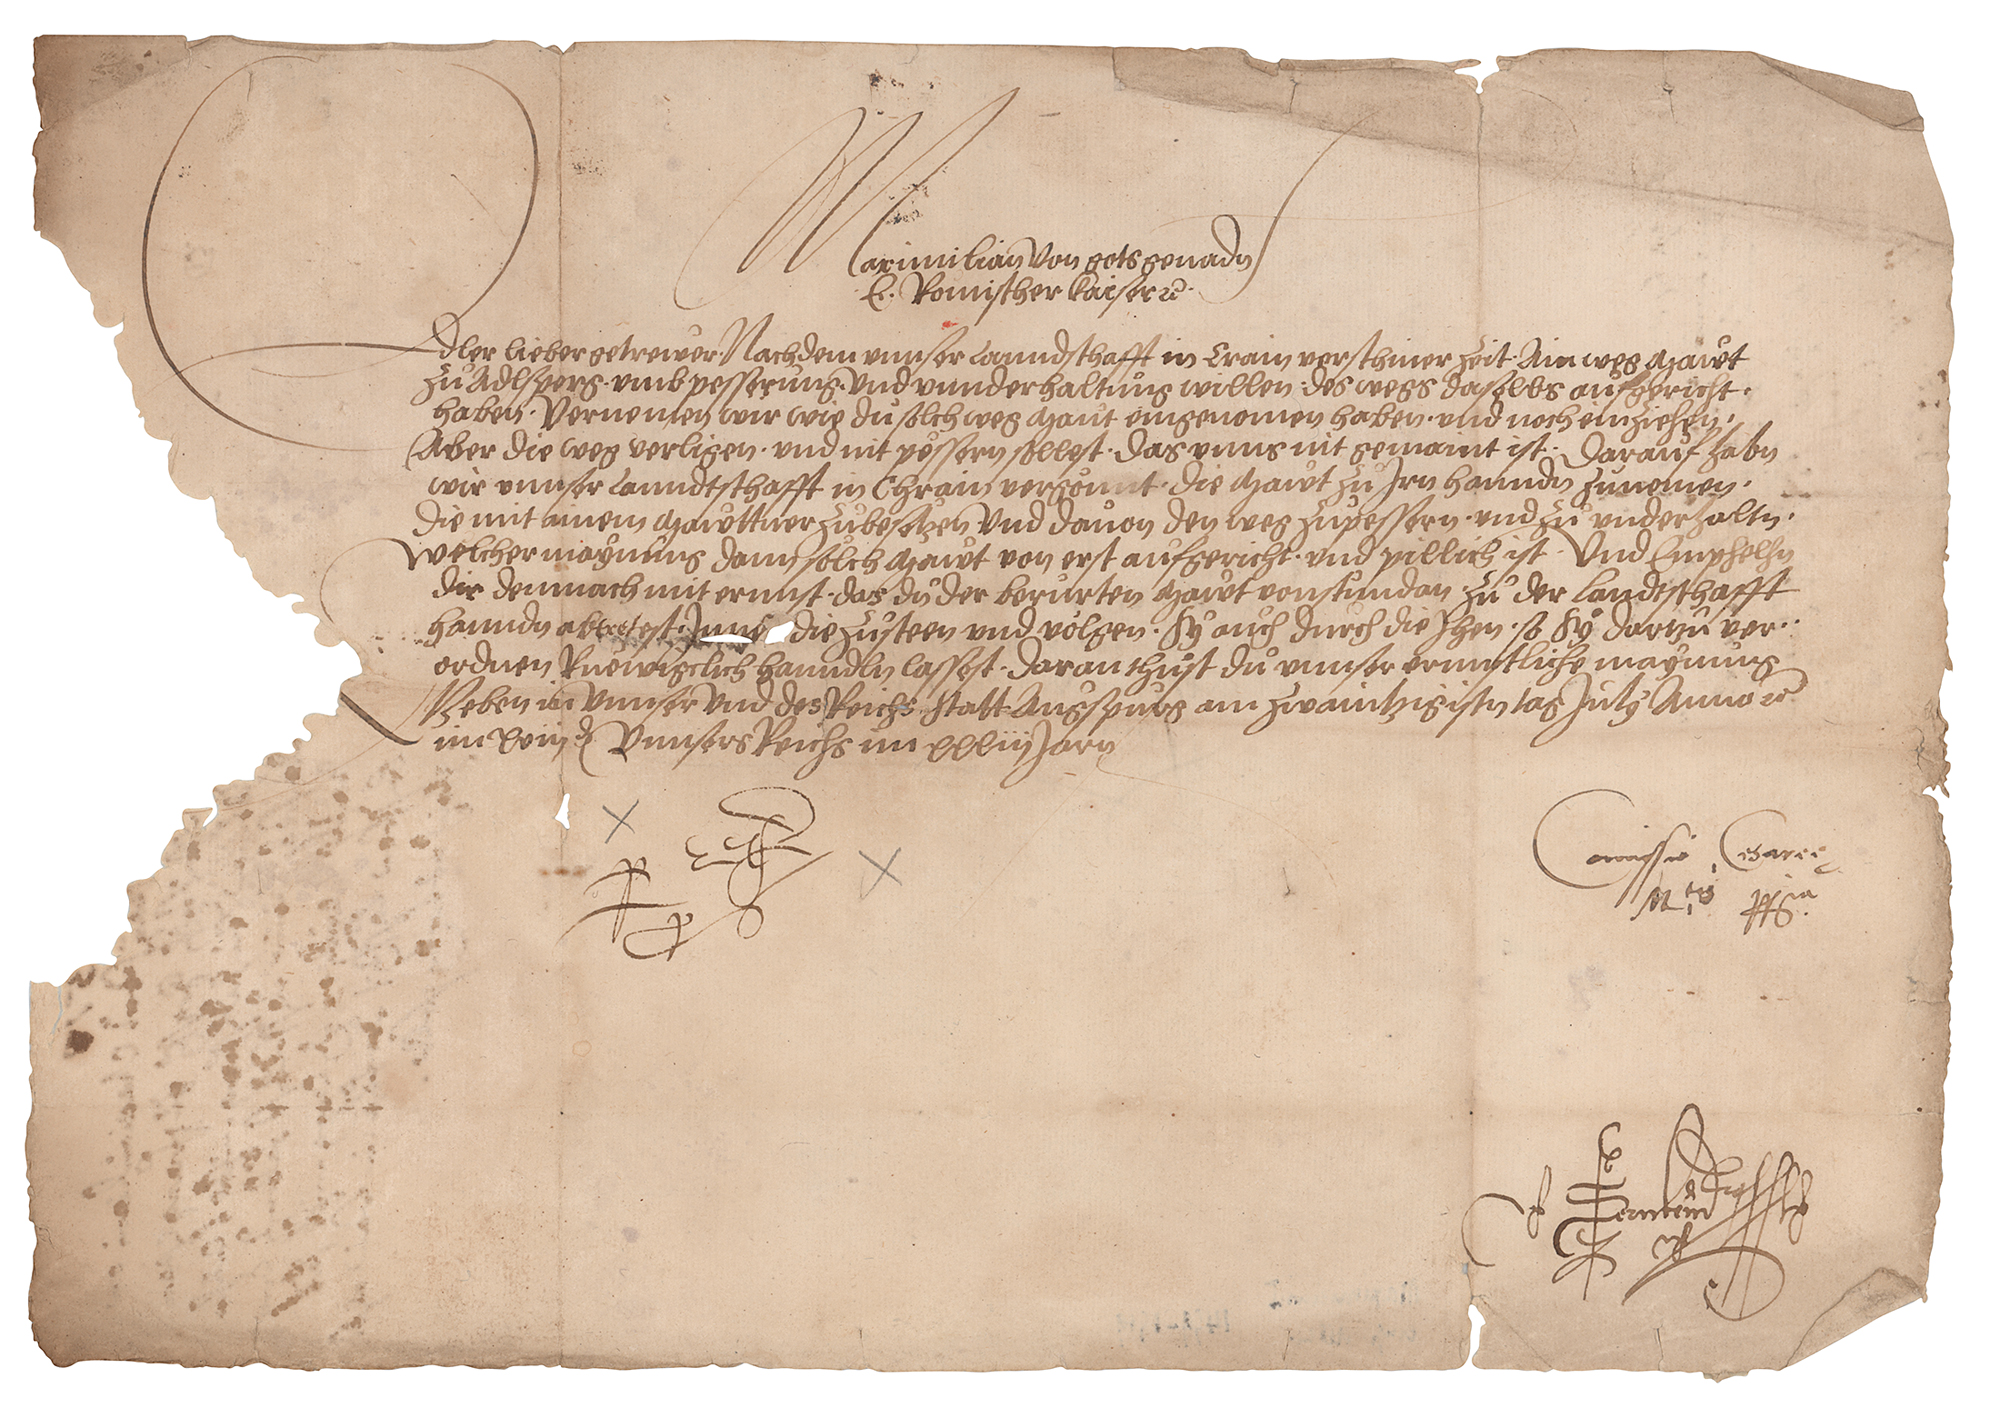 Maximilian von gots genadn
E. Romischer Kaiser ꝛc.
Edler lieber getrewer. Nachdem vnnser Lanndschafft in Crain verschiner Zeit. Ain weg Mawt
zu Adlsperg. vmb pesserung. vnd vnnderhaltung willen. des wegs daselbs aufgericht.
haben. Vernemen wir wie du solch weg Mawt eingenomen haben. vnd noch einziehen.
Aber die weg verligen. vnd nit pessern sollest. das vnns nit gemaint ist. Darauf habn
wir vnnser Lanndtschafft in Chrain vergonnt. die Mawt zu Irn hanndn zunemen.
die mit ainem Mawttner zubesetzen vnd dauon den weg zupessern. vnd zu vnderhaltn.
welcher maynung dann solch Mawt von erst aufgericht. vnd pillich ist. Vnd Emphelhn
dir demnach mit ernnst. das du der berurten Mawt vonstundan zu der Landtschafft
hanndn abtretest. Inne die zusteen vnd volgen. sy auch durch die Ihen. so sy dartzu ver..
ordnen Ruewigclich hanndln lassest. daran thust du vnnser ernnstliche maynung
Geben in vnnser vnd des Reichs Statt Augspurg am zwaintzigistn tag July Anno ꝛc
im xviij. Vnnsers Reichs im xxxiij Jarn
Comissio Cesaree
Mtis ppia